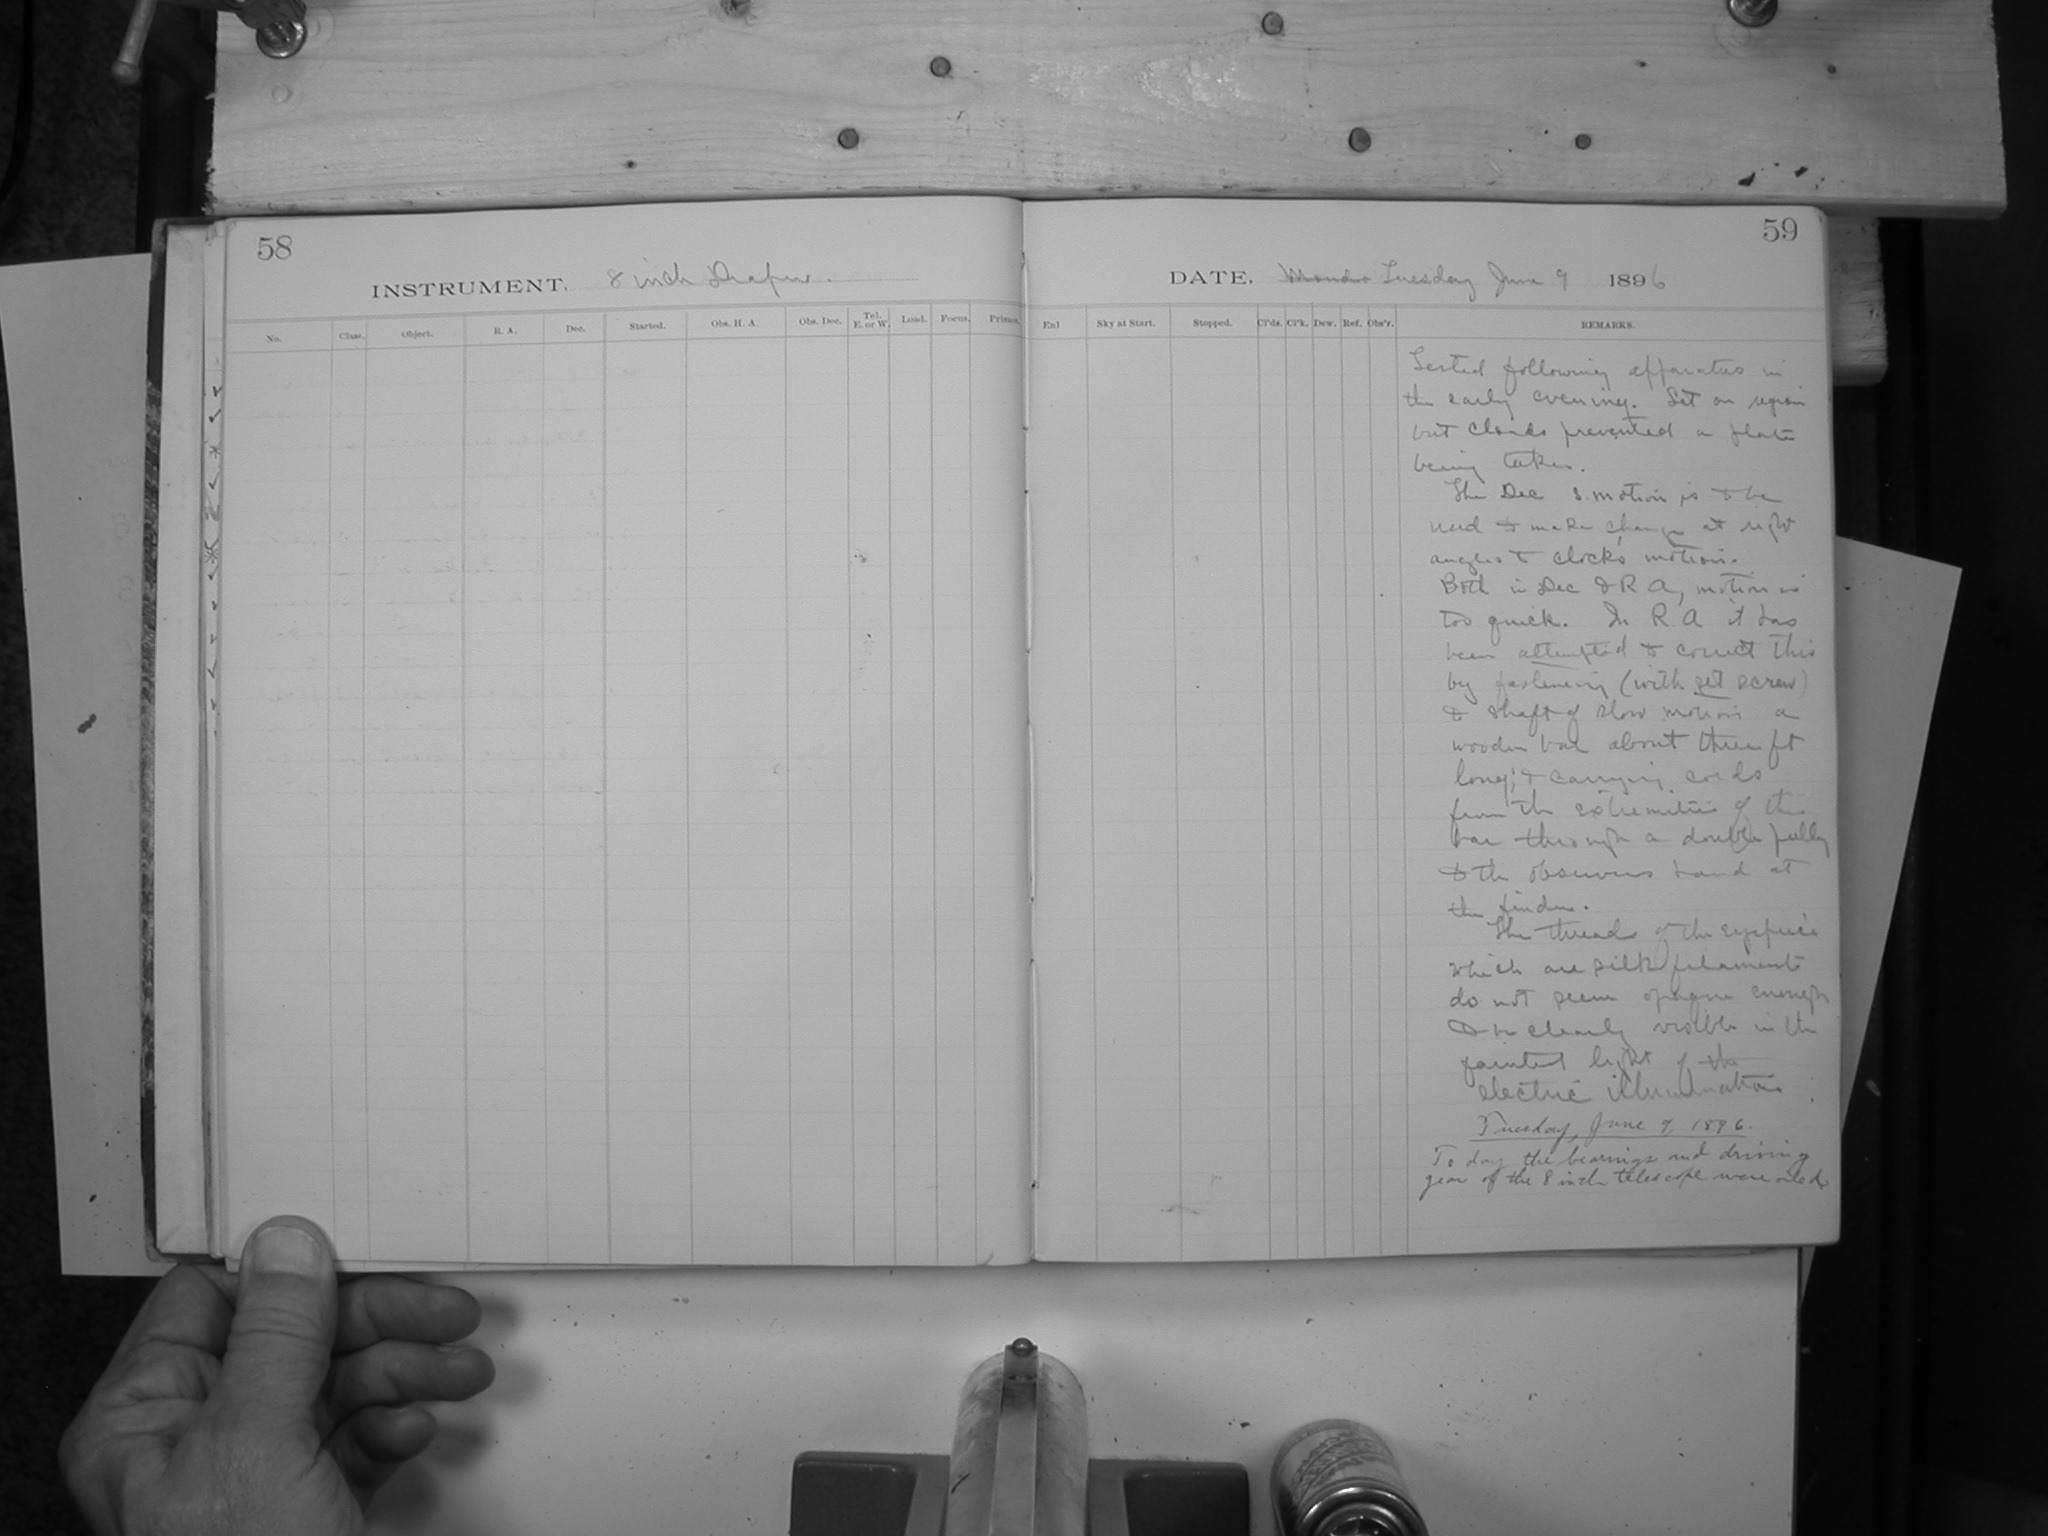 58
INSTRUMENT, 8 inch Draper.
No. Class. Object. R. A. Dec. Started. Obs. H. A. Obs. Dec. Tel. E. or W. Load. Focus. Prisms.
59
DATE, Tuesday June 9 1896
Sky at Start. Stopped. Cl'ds. Cl'k. Dew. Ref. Obs'r. REMARKS.
Tested following apparatus in
the early evening. Set on region
but clouds prevented a plate
being taken.
The Dec s. motion is to be
used to make change at right
angles to clock's motion.
Both in Dec & R A, motion is
too quick. In R. A it has
been attempted to correct this
by fastening (with set screw)
to shaft of slow motion a
wooden bar about three ft
long; & carrying cords
from the extremities of this
bar through a double pully
to the observers hand at
the finder.
The threads of the eyepiece
which are silk filaments
do not seem opaque enough
to be clearly visible in the
faintest light of the
electric illumination.
Tuesday, June 9, 1896.
To day the bearings and driving
gear of the 8 inch telescope were oiled.